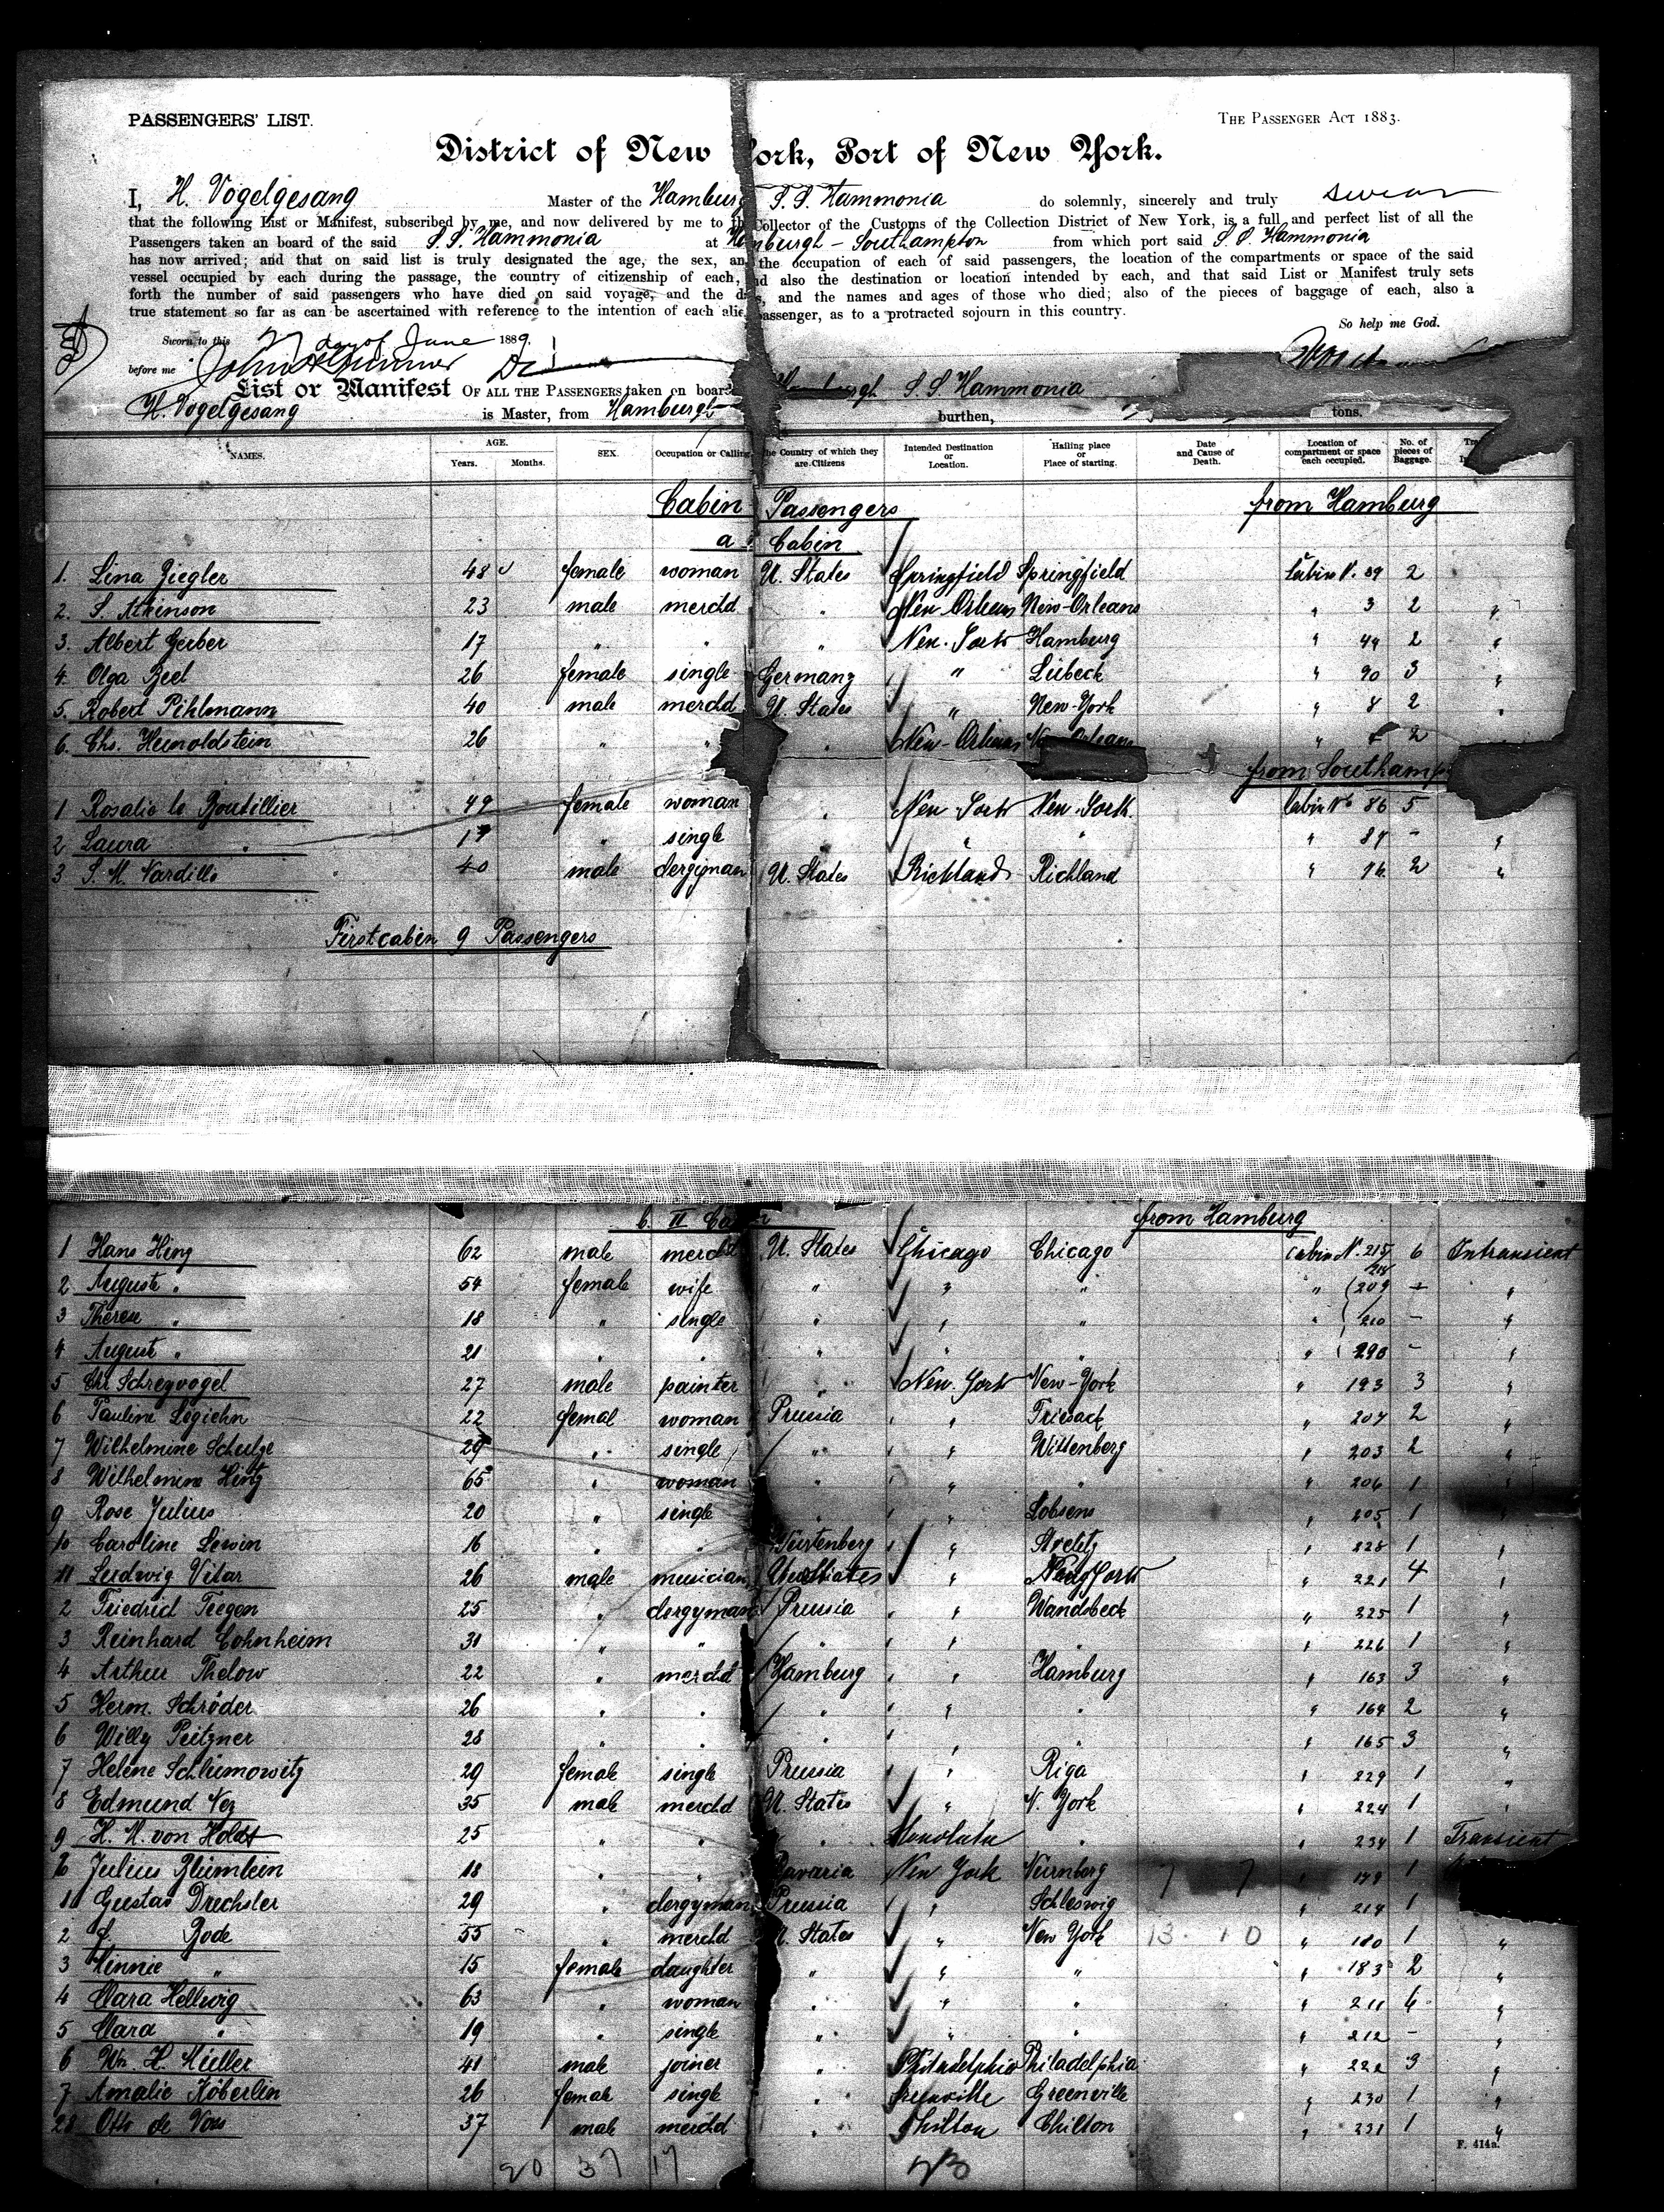 PASSENGERS' LIST.
THE PASSENGER ACT 1883.
District of New York, Port of New York.
I, H. Vogelgesang Master of the Hamburg S. S. Hammonia do solemnly, sincerely and truly swear
that the following List or Manifest, subscribed by me, and now delivered by me to th Collector of the Customs of the Collection District of New York, is a full and perfect list of all the
Passengers taken an board of the said S. S. Hammonia at Hamburgh - Southampton from which port said S. S. Hammonia
has now arrived; and that on said list is truly designated the age, the sex, an the occupation of each of said passengers, the location of the compartments or space of the said
vessel occupied by each during the passage, the country of citizenship of each, nd also the destination or location intended by each, and that said List or Manifest truly sets
forth the number of said passengers who have died on said voyage, and the d s, and the names and ages of those who died; also of the pieces of baggage of each, also a
true statement so far as can be ascertained with reference to the intention of each alie assenger, as to a protracted sojourn in this country.
So help me God.
Sworn to this 27 day of June 1889.
before me John
List or Manifest OF ALL THE PASSENGERS taken on board S. S. Hammonia
H. Vogelgesang is Master, from Hamburgh burthen, tons.
NAMES. AGE. Years. Months. SEX. Occupation or Calling he Country of which they are Citizens Intended Destination or Location. Hailing place or Place of starting. Date and Cause of Death. Location of compartment or space each occupied. No. of pieces of Baggage.
Cabin Passengers from Hamburg
a. Cabin
1. Lina Ziegler 48 female woman U. States Springfield Springfield Cabin N. 89 2
2. S. Atkinson 23 male merchd " New Orleans New-Orleans " 3 2 "
3. Albert Gerber 17 " " " New-York Hamburg " 44 2 "
4. Olga Beel 26 female single Germany " Lübeck " 90 3 "
5. Robert Pihlmann 40 male merchd U. States " New-York " 8 2 "
6. Chs. Heinoldstein 26 " " " New-Orleans New-Orleans " 2
from Southamp
1 Rosalie le Boutillier 49 female woman " New York New-York. Cabin No 86 5
2 Laura " 17 " single " " " 87 - "
3 S. M. Vardille 40 male clergyman U. States Richland Richland " 76 2 "
First cabin 9 Passengers
b. II Cabin from Hamburg
1 Hans Hing 62 male merchd U. States Chicago Chicago Cabin N. 215 6 Intransient
2 Auguste " 54 female wife " " " " 209 - "
3 Therese " 18 " single " " " " 210 - "
4 August " 21 " " " " " " 290 - "
5 Chr Schreyvogel 27 male painter " New York New-York " 193 3 "
6 Pauline Logiehn 22 femal woman Prussia " Friesack " 207 2 "
7 Wilhelmine Schulze 29 " single " " Wittenberg " 203 2 "
8 Wilhelmine Hintz 65 " woman " " " " 206 1
9 Rose Julius 20 " single " " Lobsens " 205 1
10 Caroline Lewin 16 " " Würtenberg " Strelitz " 228 1 "
11 Ludwig Vitar 26 male musician U. States " New York " 221 4 "
2 Friedrich Teegen 25 " clergyman Prussia " Wandsbeck " 225 1 "
3 Reinhard Cohnheim 31 " " " " " " 226 1 "
4 Arthur Thelow 22 " merchd Hamburg " Hamburg " 163 3 "
5 Herm. Schröder 26 " " " " " " 164 2 "
6 Willy Peitzner 28 " " " " " " 165 3 "
7 Helene Schlimowitz 29 female single Prussia " Riga " 229 1 "
8 Edmund Nez 35 male merchd U. States " N. York " 224 1 "
9 H. M. von Holdt 25 " " " Honolulu " " 234 1 Transient
20 Julius Blümlein 18 " " Bavaria New York Nürnberg " 179 1
1 Gustav Drechsler 29 " clergyman Prussia " Schleswig " 214 1
2 J. Bode 55 " merchd U. States " New York 13. 10 " 180 1 "
3 Minnie " 15 female daughter " " " " 183 2 "
4 Clara Hellwig 63 " woman " " " " 211 6 "
5 Clara " 19 " single " " " " 212 - "
6 Wm. H. Müller 41 male joiner " Philadelphia Philadelphia " 222 3 "
7 Amalie Köberlin 26 female single " Greenville Greenville " 230 1 "
28 Otto de Vos 37 male merchd " Chilton Chilton " 231 1 "
F. 414a.
20 37 17